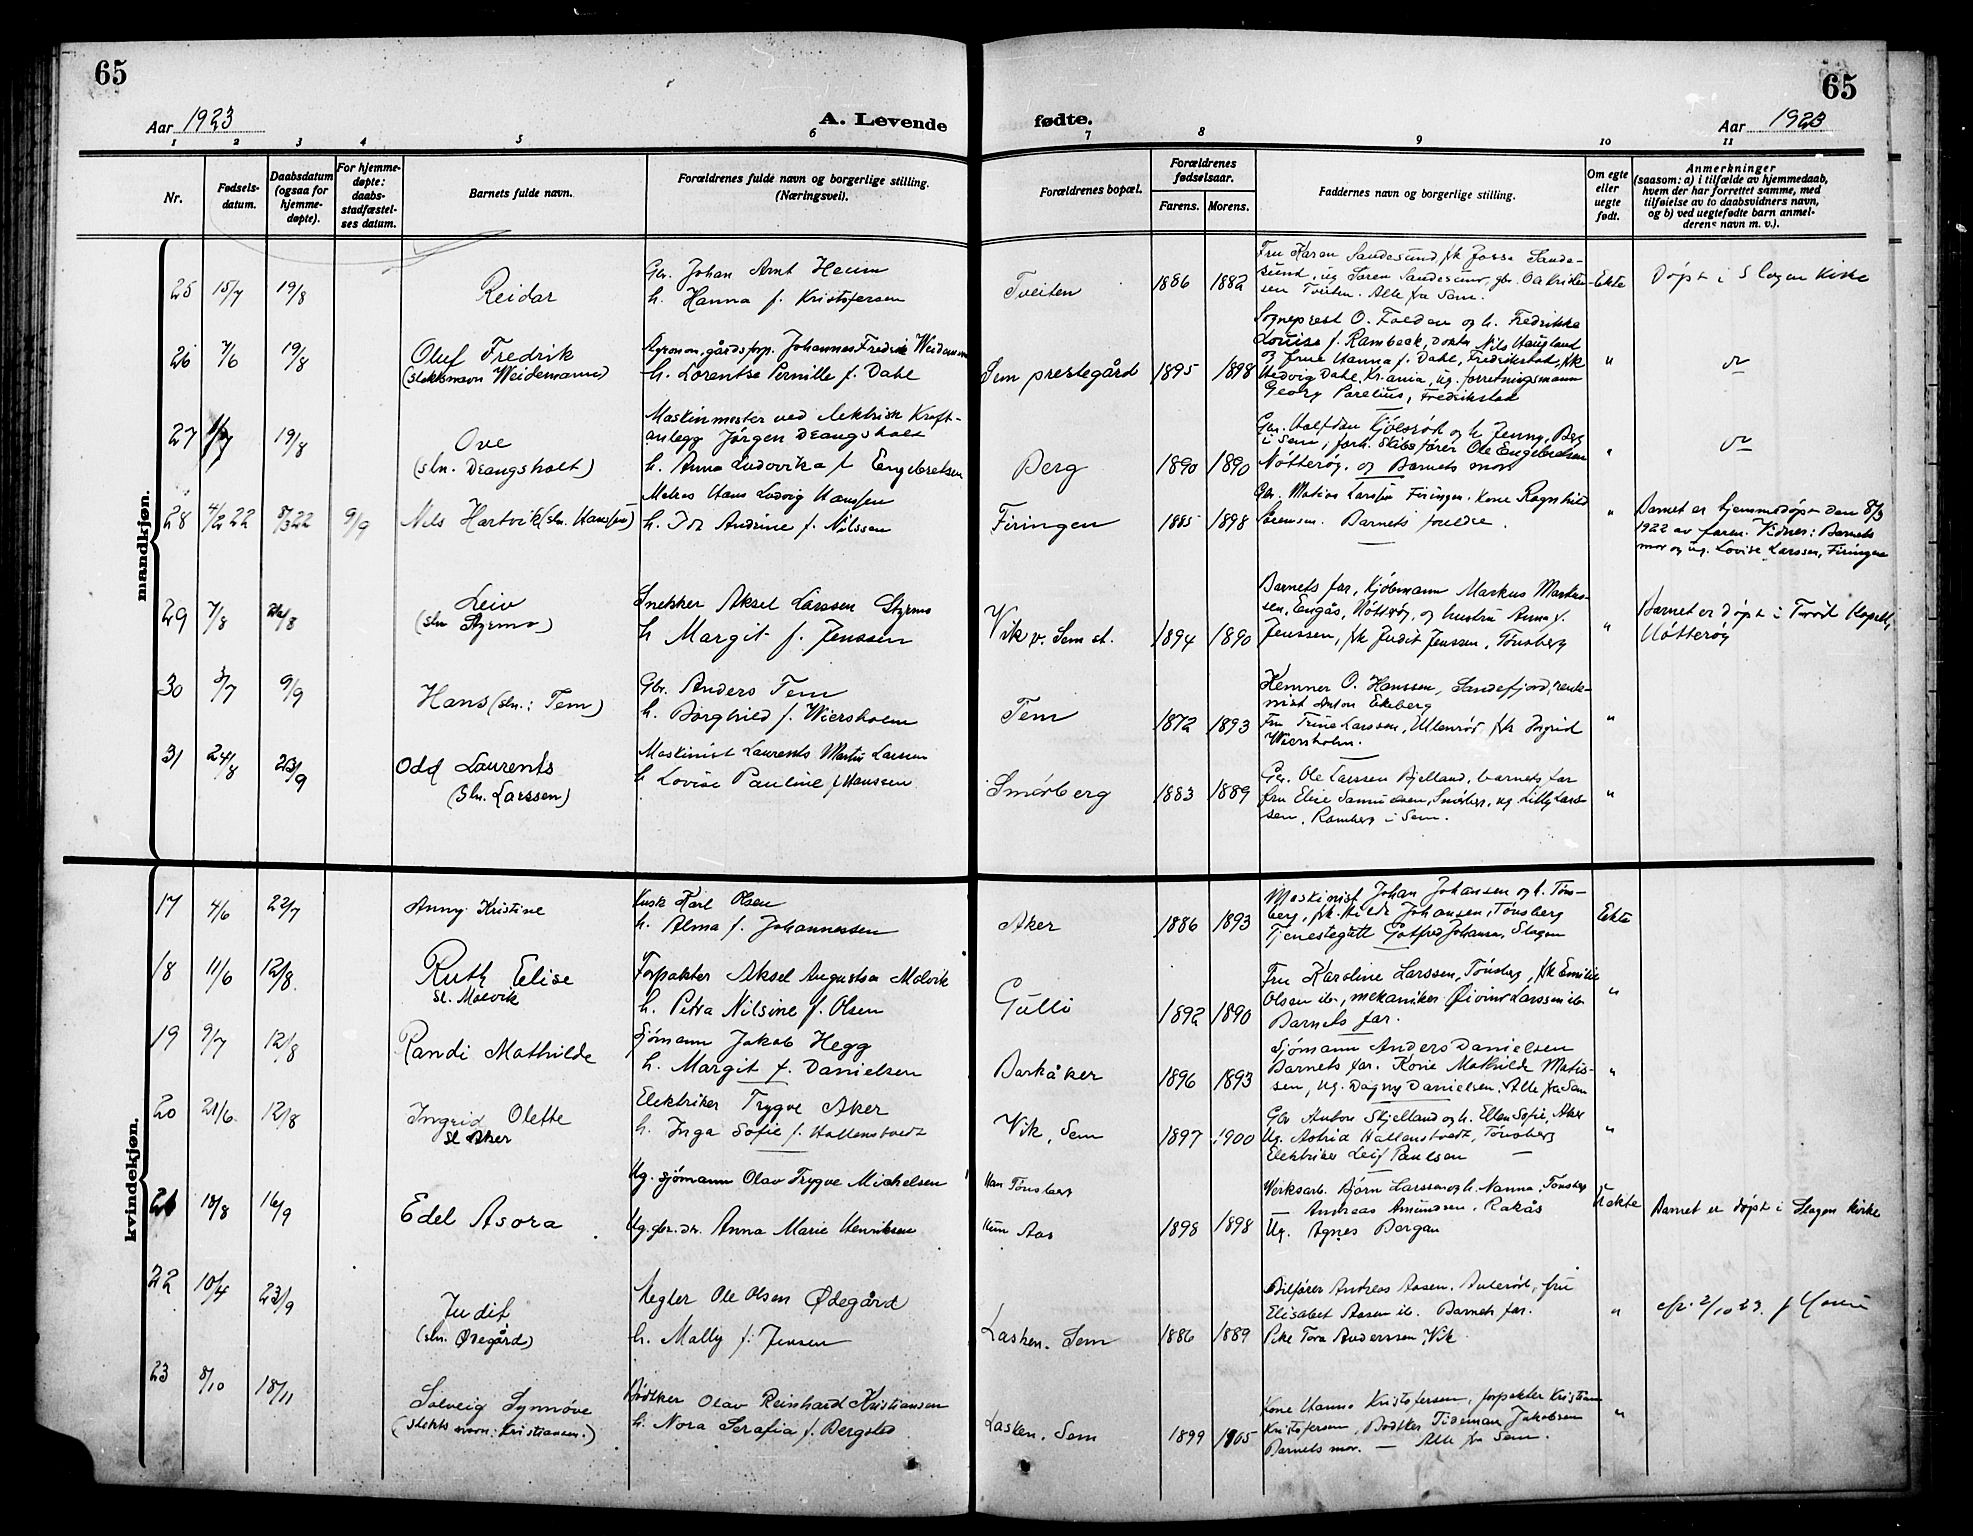 65
65
Aar 1923
A. Levende
fødte.
Aar 1923
1 2 3 4 5 6 7 8 9 10 11
Nr.
Fødsels-
datum.
Daabsdatum
(ogsaa for
hjemme-
døpte).
For hjemme-
døpte:
daabs-
stadfæstel-
ses datum.
Barnets fulde navn.
Forældrenes fulde navn og borgerlige stilling.
(Næringsvei).
Forældrenes bopæl.
Forældrenes
fødselsaar.
Farens.
Morens.
Faddernes navn og borgerlige stilling.
Om egte
eller
uegte
født.
Anmerkninger
(saasom: a) i tilfælde av hjemmedaab,
hvem der har forrettet samme, med
tilføielse av to daabsvidners navn,
og b) ved uegtefødte barn anmel-
derens navn m. v.).
mandkjøn.
25 15/7 19/8
Reidar
Gbr. Johan Arnt Heum
h. Hanna f. Kristofersen
Tveiten
1886 1882
Fru Karen Sandesund, frk Josse Sande-
sund, ug. Søren Sandesund, gbr.
sen Tveiten. Alle fra Sem.
Ekte
Døpt i Slagen Kirke
26 7/6 19/8
Oluf Fredrik
(slektsnavn Weidemann)
Agronom, gårdsforp. Johannes Fredrik Weidemann
h. Lorentse Pernille f. Dahl
Sem prestegård
1895 1898
Sogneprest O. Folden og h. Fredrikke
Louise f. Rambeck, Doktor Nils Haugland
og frue Hanna f. Dahl, Fredrikstad, frk
Hedvig Dahl, Kr.ania, ug. forretningsmann
Georg Parelius, Fredrikstad
"
27 19/8
Ove
(sln. Deangsholt)
Maskinmester ved elektrisk Kraft-
anlegg Jørgen Deangsholt
h. Anna Ludovika f. Engebretsen
Berg
1890 1890
Gbr. Halfdan Fjøesrød og h. Jenny, Berg
i Sem, forh. Skibsfører Ole Engebretsen
Nøtterøy, og Barnets mor
"
28 4/2 22 8/3 22 9/9
Nils Hartvik (sln. Hanssen)
Hans Ludvig Hanssen
h. Ida Andrine f. Nilssen
Firingen
1885 1898
Gbr. Matias Larssen Firingen. Kone Ragnhild
Sørensen. Barnets foreldre.
"
Barnet er hjemmedøpt den 8/3
1922 av faren. Vidner: Barnets
mor og ug. Lovise Larssen, Firingen
29 7/8 26/8
Leiv
(sln Styrmo)
Snekker Aksel Larssen Styrmo
h Margit f. Jenssen
Vik v. Sem st.
1894 1890
Barnets far, Kjøbmann Markus Martin-
sen, Engås, Nøtterøy, og hustru Anna f.
Jenssen, frk Judit Jenssen, Tønsberg
"
Barnet er døpt i Torød Kapell,
Nøtterøy
30 3/7 9/9
Hans (sln.: Tem)
Gbr. Anders Tem
h. Borghild f. Wiersholm
Tem
1872 1893
Kemner O. Hanssen, Sandefjord,
Anton Ekeberg
Fru Trine Larssen, Ullenrød frk Ingrid
Wiersholm.
"
31 24/8 23/9
Odd Laurents
(Sln. Larssen)
Maskinist Laurents Martin Larssen
h Lovise Pauline f. Hanssen
Smørberg
1883 1889
Gbr. Ole Larssen Bjelland, barnets far
fru Elise Samuelsen, Smørberg, ug Lilly Lars-
sen, Ramberg i Sem.
"
kvindekjøn.
17 4/6 22/7
Anny Kristine
Kusk Karl Olsen
h. Alma f. Johannessen
Aker
1886 1893
Maskinist Johan Johansen og h. Tøns-
berg, frk. Hilda Johansen, Tønsberg
Tjenestegutt Gotfred Johansen, Slagen
Ekte
18 11/6 12/8
Ruth Elise
sl. Molvik
Forpakter Aksel Augustsen Molvik
h. Petra Nilsine f. Olsen
Gulli
1892 1890
Fru Karoline Larssen, Tønsberg, frk Emilie
Olsen ib., mekaniker Øivind Larssen ib
Barnets far.
"
19 9/7 12/8
Randi Mathilde
Sjømann Jakob Hegg
h. Margit f. Danielsen
Barkåker
1896 1893
Sjømann Anders Danielsen
Barnets far. Kone Mathilde Matis-
sen, ug. Dagny Danielsen. Alle fra Sem
"
20 21/6 12/8
Ingrid Olette
sl Aker
Elektriker Trygve Aker
h. Inga Sofie f. Hallenstvedt
Vik, Sem
1897 1900
Gbr Anton Skjelland og h. Ellen Sofie, Aker
Ug. Astrid Hallenstvedt, Tønsberg
Elektriker Leif Paulsen
"
21 18/8 16/9
Edel Asora
Ug. sjømann Olav Trygve Michelsen
Ug. gbr. dr. Anna Marie Henriksen
Han Tønsberg
Hun Aas
1898 1898
Verksarb. Bjørn Larssen og h. Nanna, Tønsberg
Andreas Amundsen, Rakås
Ug. Agnes Borgan
Uekte
Barnet er døpt i Slagen Kirke
22 10/4 23/9
Judit
(sln. Ødegård)
Hegler Ole Olsen Ødegård
h. Mally f. Jensen
Lasken. Sem
1886 1889
Bilfører Andreas Aasen, Aulerød, fru
Elisabet Aasen ib. Barnets far.
Pike Tora Anderssen, Vik
"
2/10 23.
23 8/10 18/11
Solveig Synnøve
(slekts navn: Kristiansen.)
Bødtker Olav Reinhard Kristiansen
h. Nora Serafia f. Bergsted
Lasken. Sem
1899 1905
Kone Hanna Kristofersen, forpakter Kristian
Kristofersen, Bødtker Tideman Jakobsen
Barnets mor. — Alle fra Sem.
"